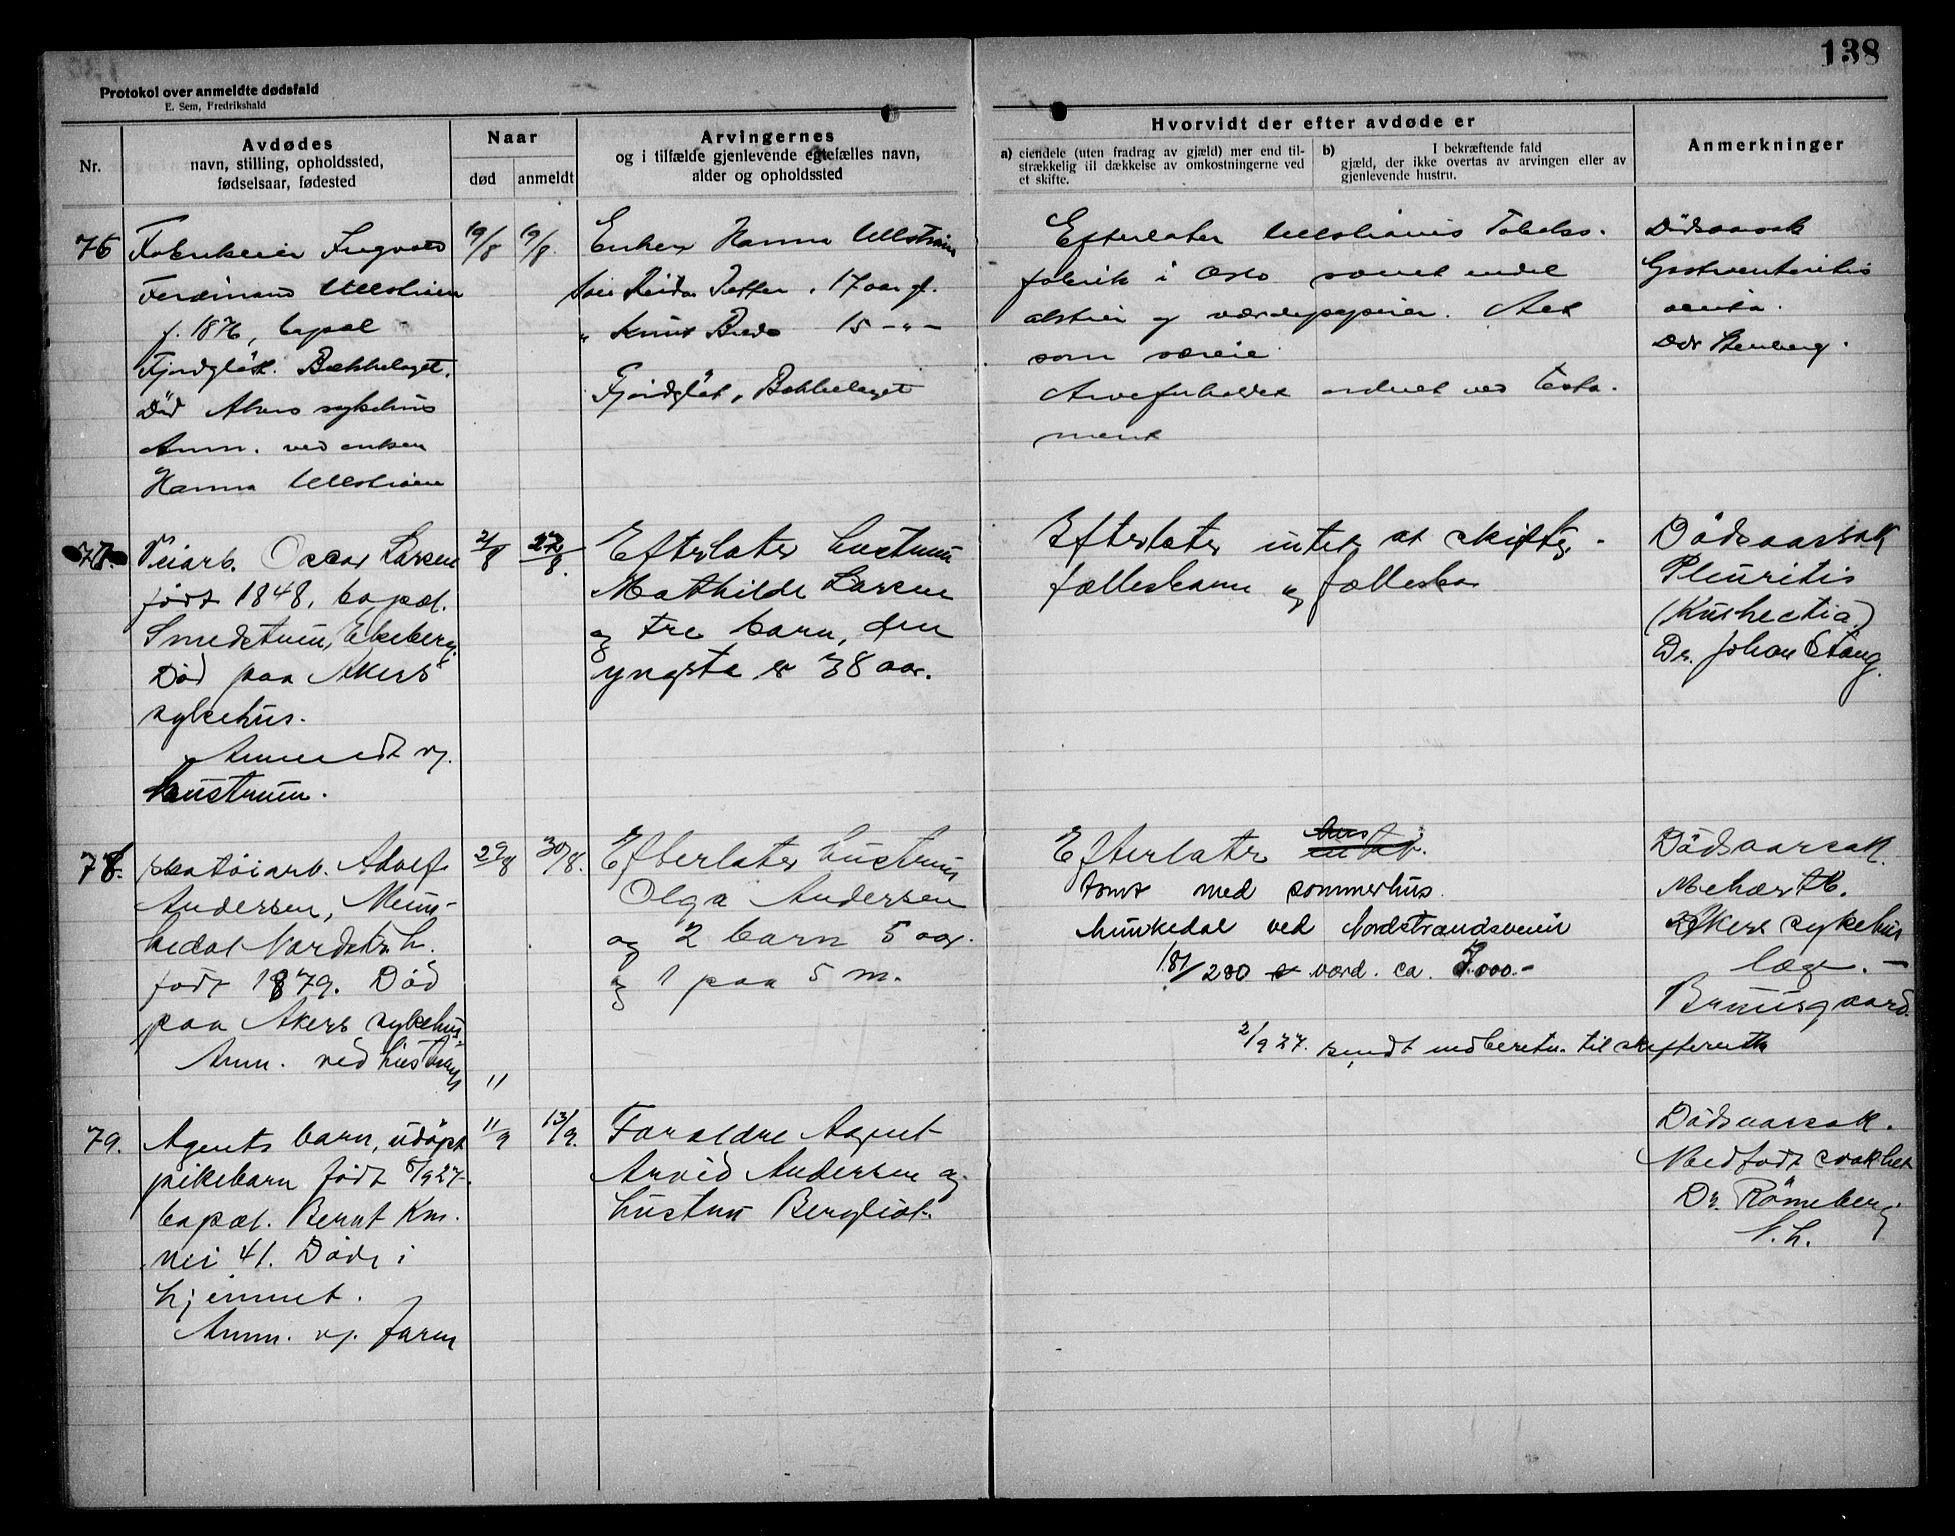 138
Protokol over anmeldte dødsfald
E. Sem, Fredrikshald
Nr.
Avdødes
navn, stilling, opholdssted,
fødselsaar, fødested
Naar
død
anmeldt
Arvingernes
og i tilfælde gjenlevende egtefælles navn,
alder og opholdssted
Hvorvidt der efter avdøde er
a) eiendele (uten fradrag av gjæld) mer end til-
strækkelig til dækkelse av omkostningerne ved
et skifte.
b) I bekræftende fald
gjæld, der ikke overtas av arvingen eller av
gjenlevende hustru.
Anmerkninger
76
Ferdinand
f. 1876, bopæl
Fjordgløt. Bækkelaget.
Død Akers sykehus
Anm. ved enken
Hanna
19/8
19/8.
Enken Hanna
17 aar gl.
" Knut 15 - " -
Fjordgløt, Bækkelaget
Efterlater
fabrik i Oslo samt endel
aktier og værdipapirer. Alt
som særeie
Arveforholdet ordnet ved testa-
ment
Dødsaarsak
77.
Veiarb. Oscar Larsen
født 1848, bopæl.
Ekeberg.
Død paa Akers
sykehus.
Anmeldt v.
hustruen.
2/8
Efterlater hustruen
Mathilde Larsen
og tre barn, den
yngste er 38 aar.
Efterlater intet at skifte,
fællesbarn og fællesbo
Dødsaarsak
Pleuritis
Dr. Johan Stang.
78.
Adolf
Andersen, Mun-
kedal Nordstrh.
født 1879. Død
paa Akers sykehus.
Anm. ved hustruen
29/8
30/8.
Efterlater hustruen
Olga Andersen
og 2 barn 5 aar.
og 1 paa 5 m.
Efterlater
tomt med sommerhus
Munkedal ved Nordstrandsveien
181/280 værd. ca. 7.000.-
2/9 27. sendt indberetn. til skifterett
Dødsaarsak.
Akers sykehus
læge. -
Bruusgaard.
11
79.
Agents barn, udøpt
pikebarn født 5/9 27.
bopæl. Bernt Kn.
vei 41. Døde i
hjemmet.
Anm. v. faren
11/9
13/9.
Foreldre Agent
Arvid Andersen og
hustru Bergliot.
Dødsaarsak.
Medfødt svakhet
Dr. Römeberg
N. h.